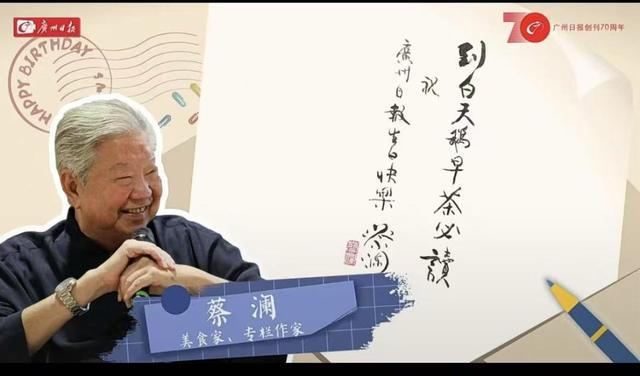 廣州日报
70
广州日报创刊70周年
HAPPY BIRTHDAY
到白天鹅早茶必讀
祝
廣州日報生日快樂
蔡澜
蔡 澜
美食家、专栏作家